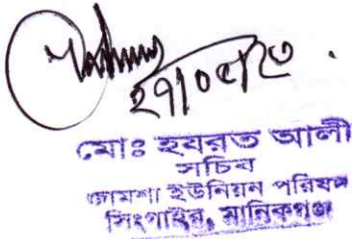 ২৭/০৫/২৩
মোঃ হযরত আলী
সচিব
জামশা ইউনিয়ন পরিষদ
সিংগাইর, মানিকগঞ্জ